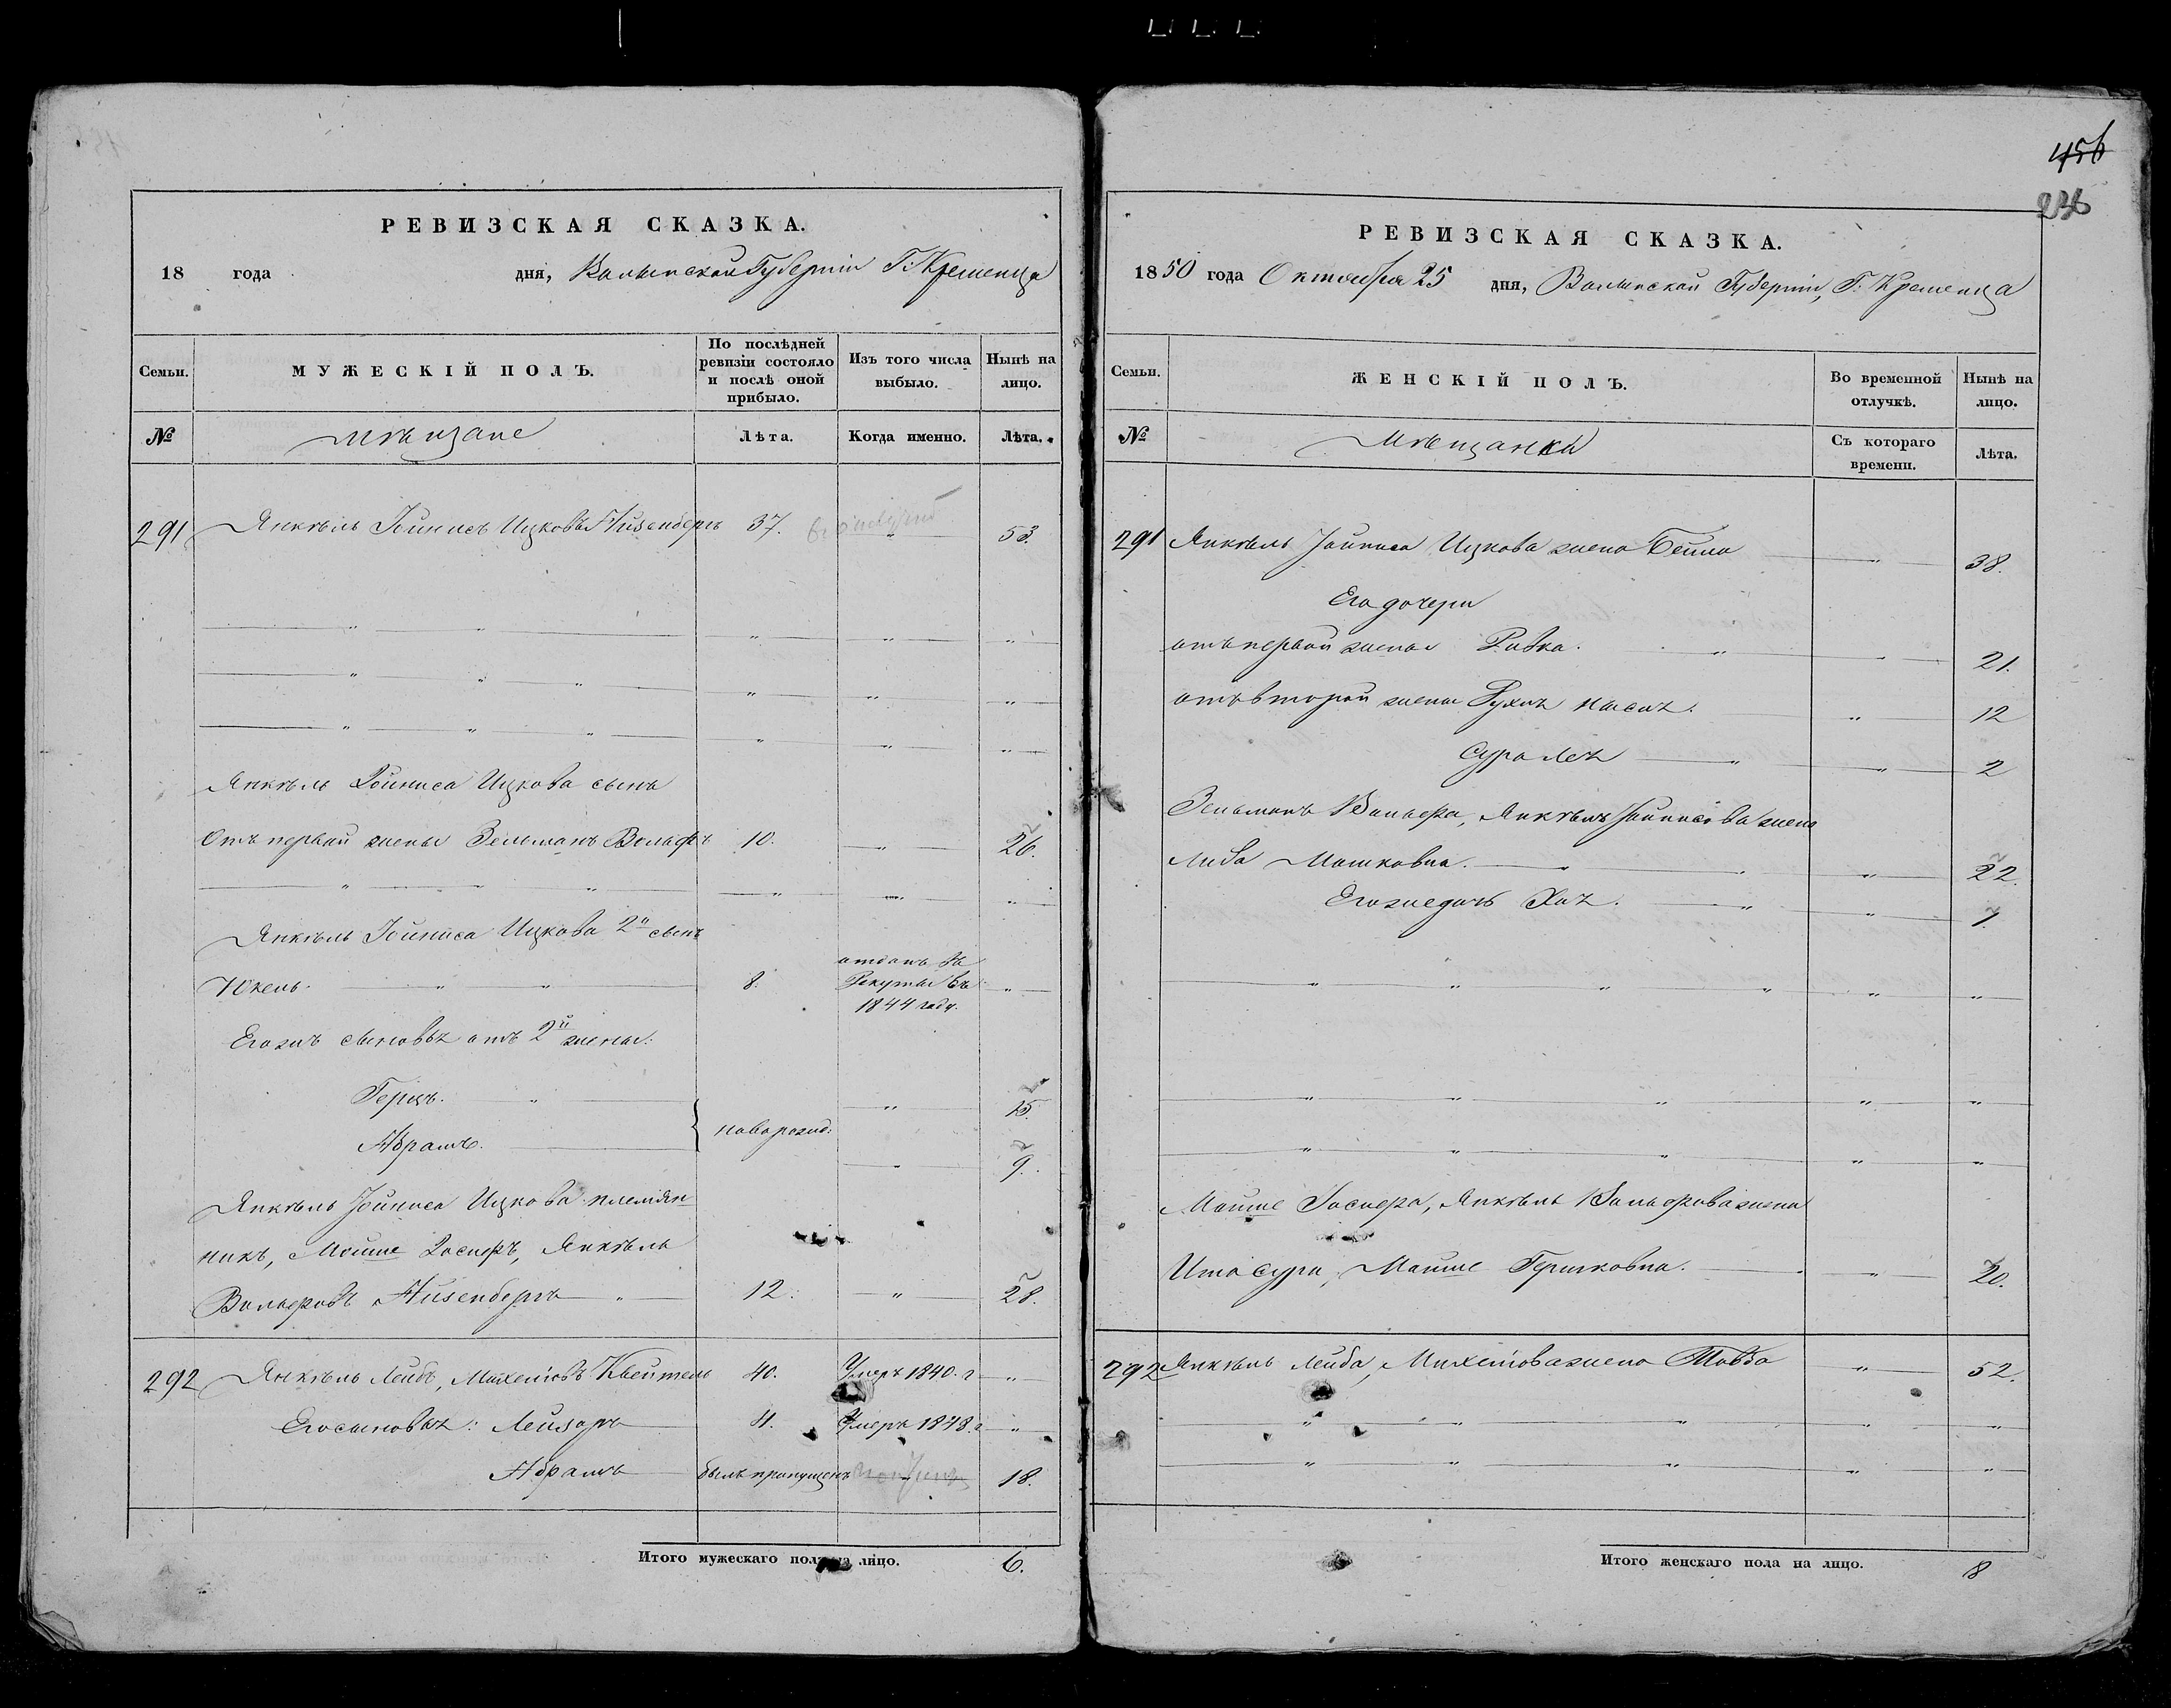 456
236
РЕВИЗСКАЯ СКАЗКА.
18 года дня, Волынской Губернiи Г: Кременца
Семьи. МУЖЕСКIЙ ПОЛЪ. По послѣдней ревизiи состояло и послѣ оной прибыло. Изъ того числа выбыло. Нынѣ на лицо.
№ Мѣщане Лѣта. Когда именно. Лѣта.
291 Янкѣль Iойнисъ Ицковъ Айзенбергъ 37. " 53.
Янкѣль Iойниса Ицкова сынъ
Отъ первой жены Зельманъ Вольфъ 10. " 26.
Янкѣль Iойниса Ицкова 2й сынъ
Юкель. 8. отданъ въ Рекруты въ 1844 году. "
Егожъ сыновья отъ 2й жены:
Герцъ. " 15.
новорожд:
Абрамъ. " 9.
Янкѣль Iойниса Ицкова племян-
никъ, Мойше Iосифъ, Янкѣль
Вольфовъ Айзенбергъ 12. " 28.
292 Янкѣль Лейбъ, Михелiовъ 40. Умеръ 1840. г "
Его сыновья: Лейзоръ 4. Умеръ 1848. г "
Абрамъ былъ пропущенъ 18.
Итого мужескаго пола на лицо. 6.
РЕВИЗСКАЯ СКАЗКА.
1850 года Октября 25 дня, Волынской Губернiи, Г: Кременца
Семьи. ЖЕНСКIЙ ПОЛЪ. Во временной отлучкѣ. Нынѣ на лицо.
№ Мѣщанки Съ котораго времени. Лѣта.
291 Янкѣль Iойниса Ицкова жена Бейла " 38.
Его дочери
отъ первой жены Ривка. " 21.
отъ второй жены Рухля " 12
Сура Лея " 2
Зельманъ Вольфа, Янкѣль Iойнисова жена
Либа Мошковна. " 22.
Его же дочь Хая. " 1.
Мойше Iосифа, Янкѣль Вольфова жена
Ита Сура, Мойше Гершковна. " 20.
292 Янкѣль Лейба, Михелiова жена Товба " 52.
Итого женскаго пола на лицо. 8